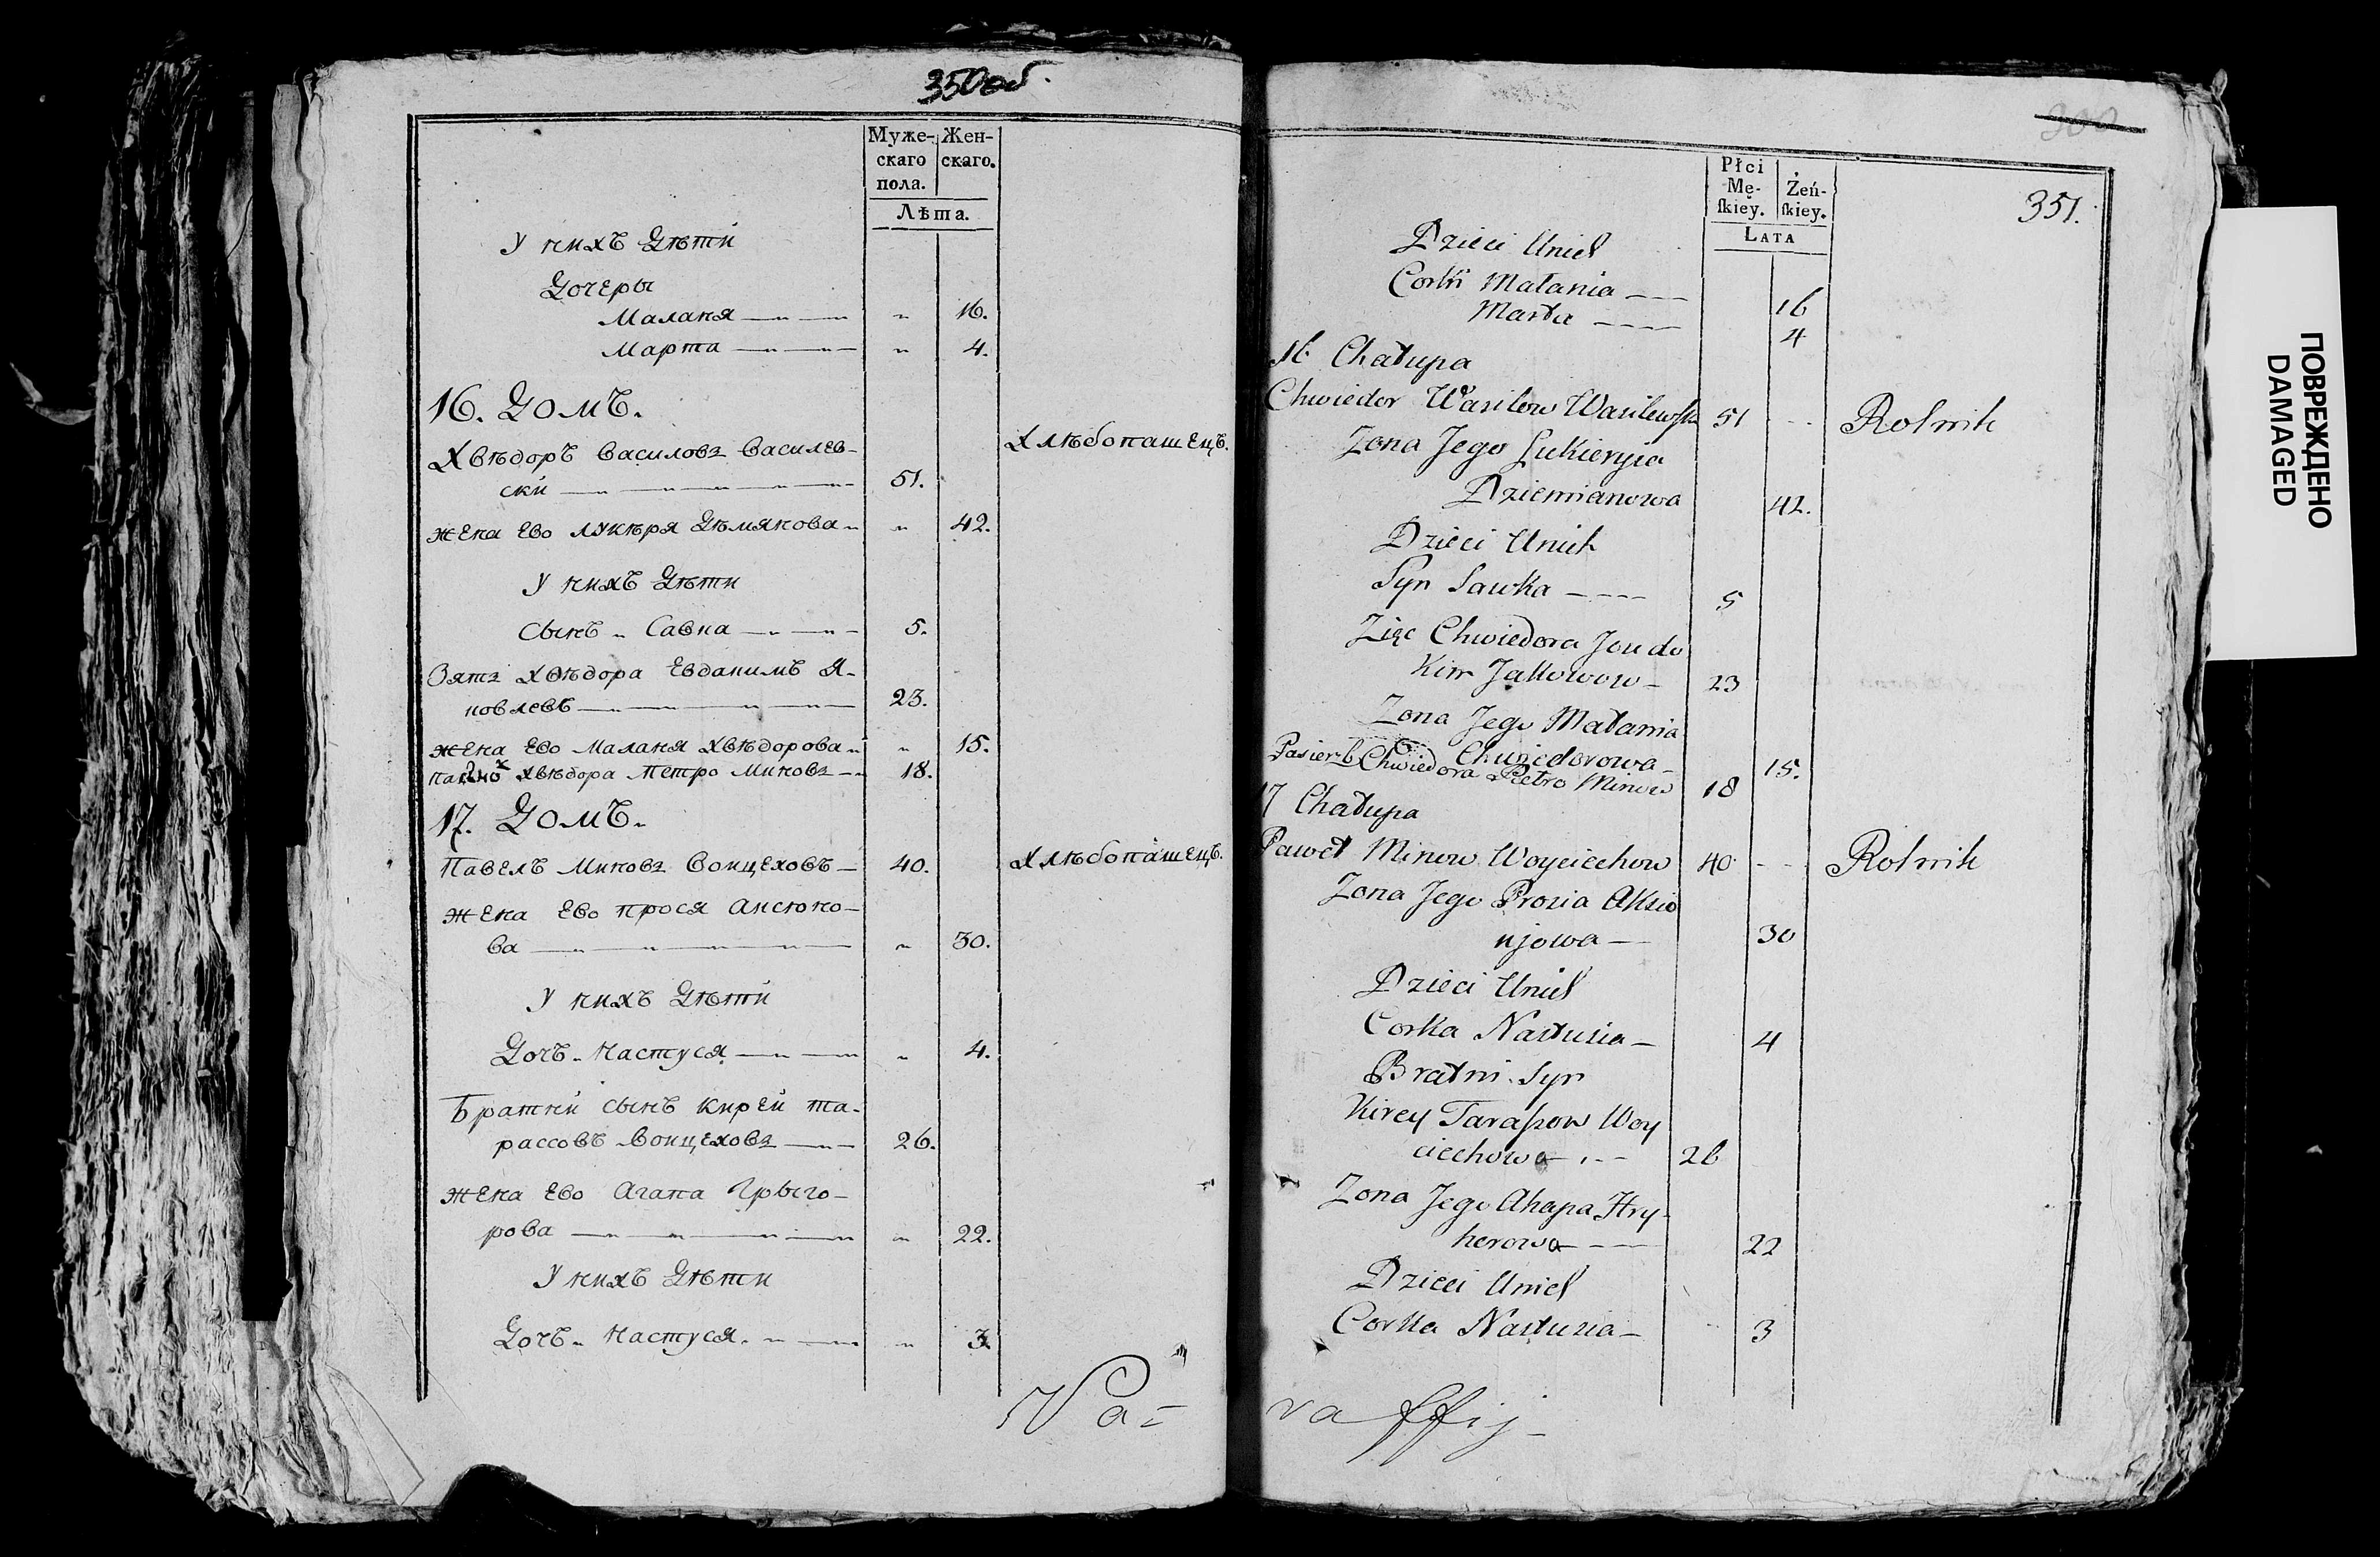 350 об.
Муже-
скаго
пола.
Жен-
скаго.
Лѣта.
У нихъ Дѣти
Дочеры
Маланя 16.
Марта 4.
16. Домъ.
Хвѣдоръ Василовъ Василев-
ски 51. Хлѣбопашецъ.
жена Ево Лукѣря Дѣмянова 42.
У нихъ Дѣти
Сынъ Савка 5.
Зять Хвѣдора Евдакимъ Я-
ковлевъ 23.
жена Ево Маланя Хвѣдорова 15.
Хвѣдора Петро Миновъ 18.
17. Домъ.
Павелъ Миновъ Воицеховъ 40. Хлѣбопашецъ.
жена Ево Прося Аксюко-
ва 30.
У нихъ Дѣти
Дочъ Настуся 4.
Братни сынъ Кирей Та-
рассовъ Воицеховъ 26.
жена Ево Агапа Грыго-
рова 22.
У нихъ Дѣти
Дочъ Настуся 3.
Pa=
300
351.
Płci
Mę-
ſkiey.
Żeń-
ſkiey.
LATA
Dzieci Unich
Corki Małania 16
Marta 4
16 Chałupa
Chwiedor Wasilow Wasilewski 51 Rolnik
Zona Jego Łukieryia
Dziemianowa 42.
Dzieci Unich
Syn Sawka 5
Zięc Chwiedora Jouda
Kim Jakowow 23
Zona Jego Małania
Chwiedorowa 15.
Pasierb Chwiedora Pietro Minow 18
17 Chałupa
Paweł Minow Woyciechow 40 Rolnik
Zona Jego Prosia Aksio
njowa 30
Dzieci Unich
Corka Nastusia 4
Bratni Syn
Kirey Taraſsow Woy
ciechowa 26
Zona Jego Ahapa Hry-
herowa 22
Dzieci Unich
Corka Nastusia 3
raffij
ПОВРЕЖДЕНО
DAMAGED